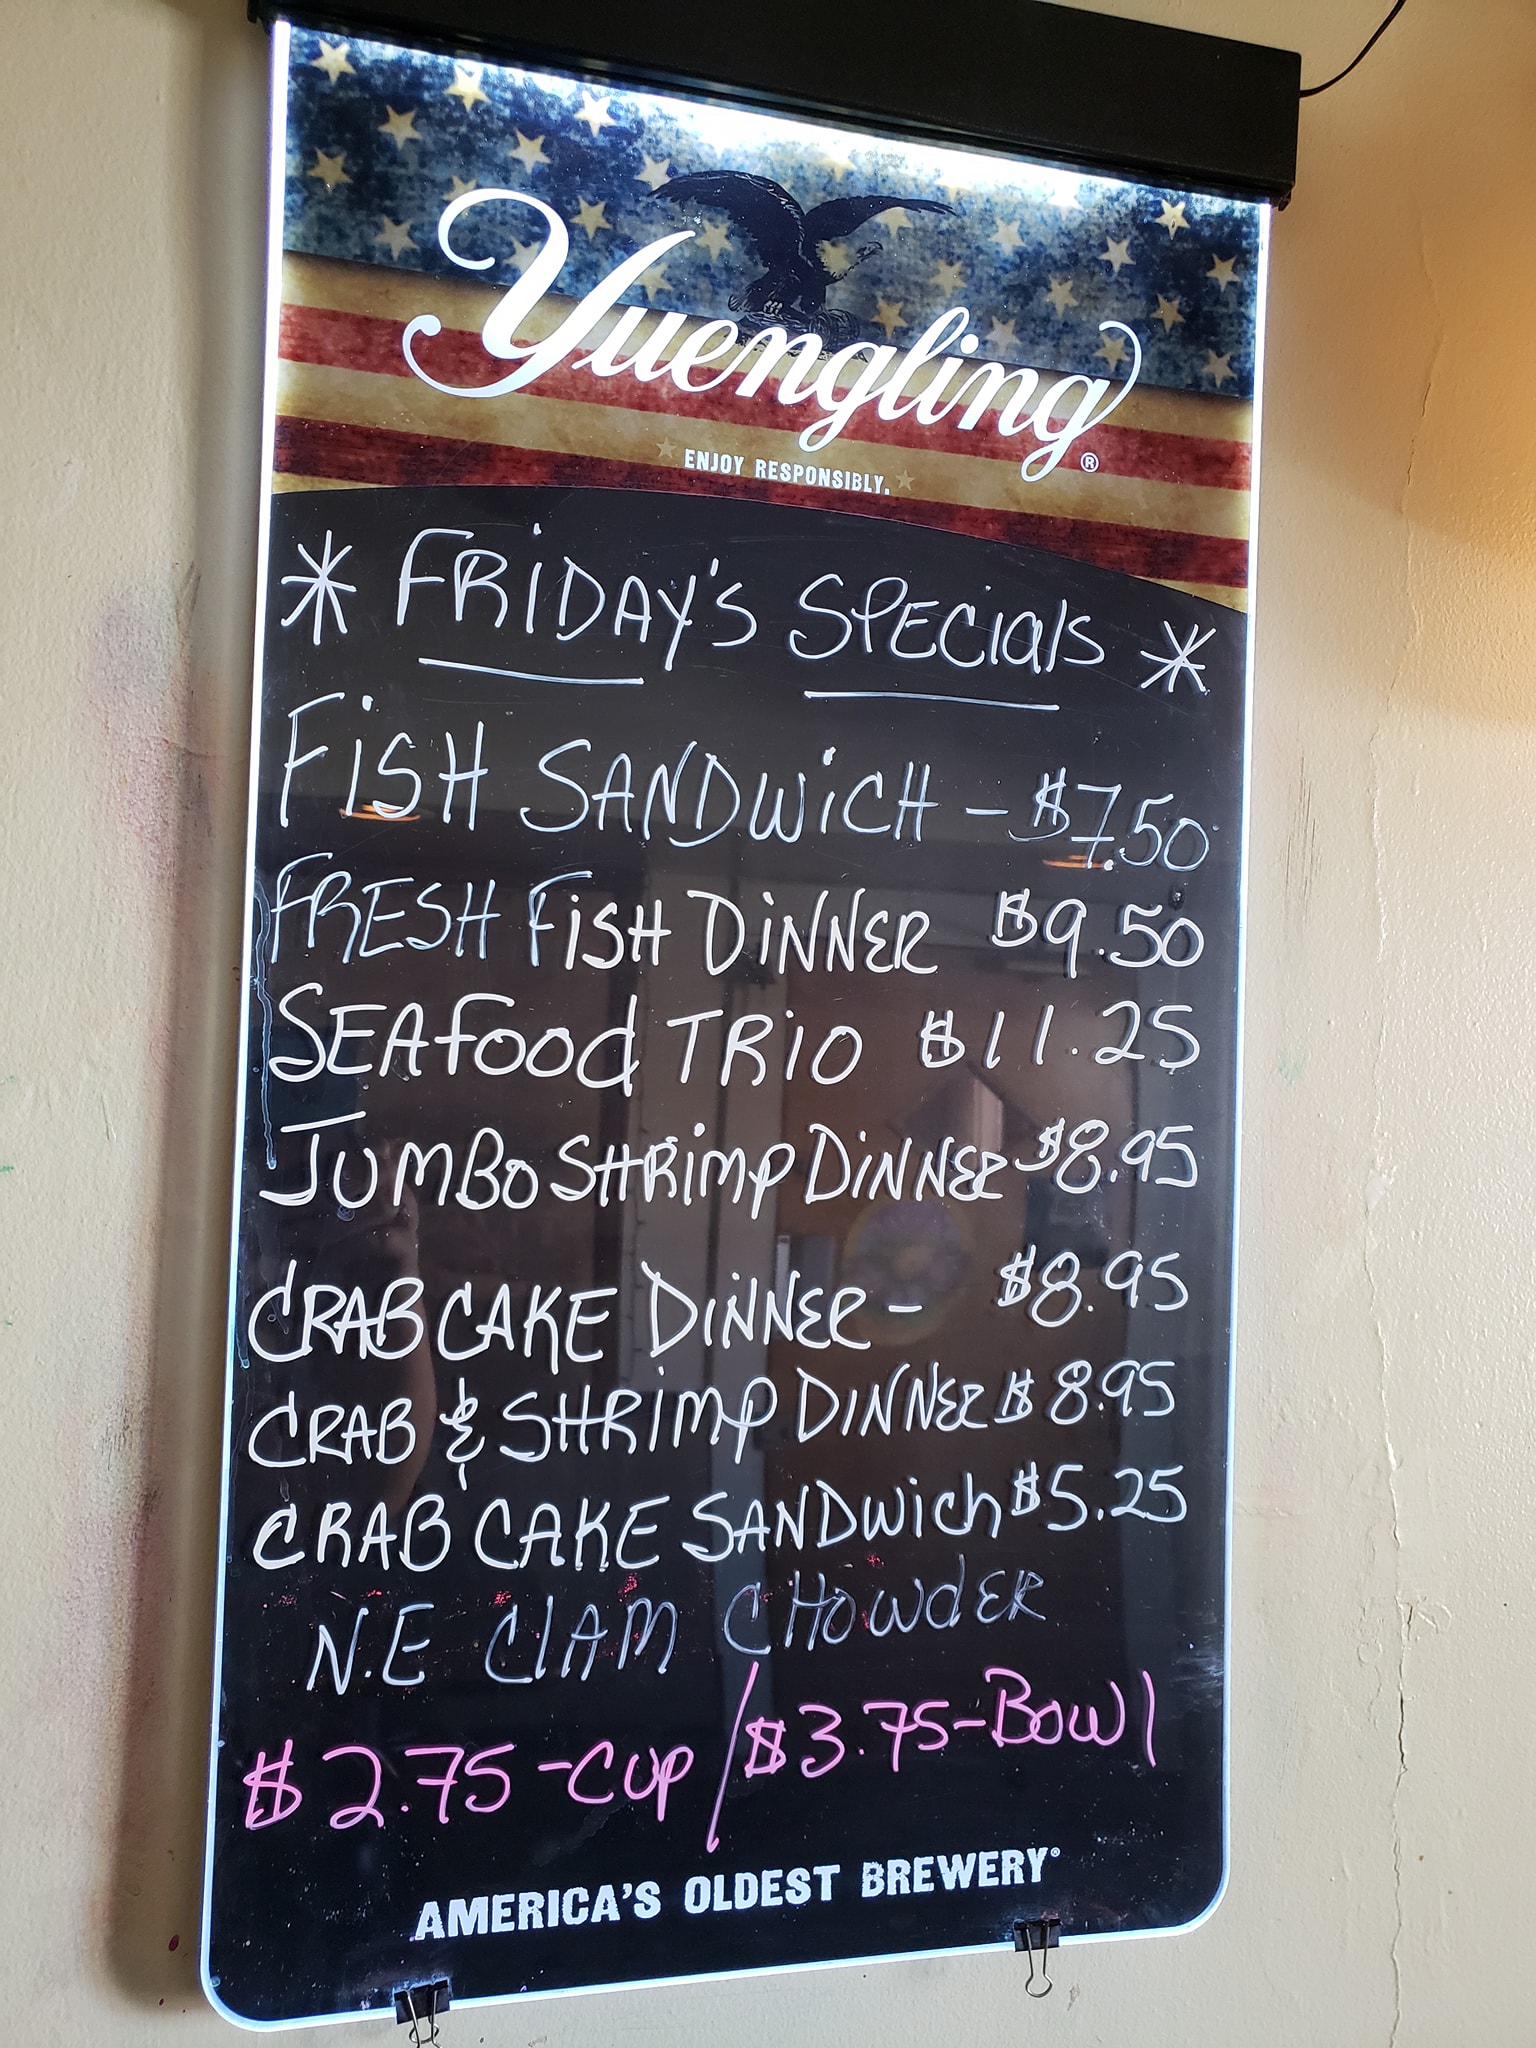 Yuengling®
ENJOY RESPONSIBLY.
* FRiDAY's SPECials *
FiSH SANDWiCH - $7.50
FRESH FiSH DiNNER $9.50
SEAfood TRiO $11.25
JUMBO SHRimp DiNNER $8.95
CRAB CAKE DiNNER - $8.95
CRAB & SHRimp DiNNER $8.95
CRAB CAKE SANDWich $5.25
N.E ClAM CHOWdER
$2.75-Cup / $3.75-Bowl
AMERICA'S OLDEST BREWERY®